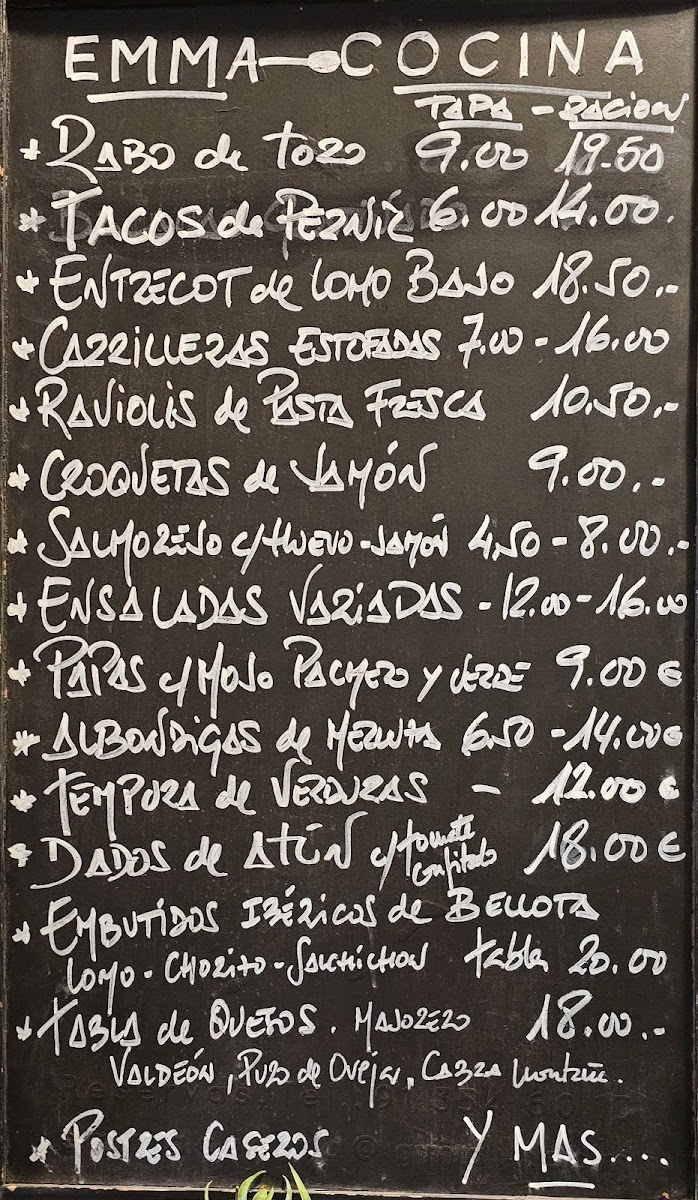 EMMA COCINA
TAPA - RACION
* RABO de TORO 9.00 19.50
* TACOS de PERNIL 6.00 14.00.
* ENTRECOT de LOMO BAJO 18.50.-
* CARRILLERAS ESTOFADAS 7.00 - 16.00
* RAVIOLIS de PASTA FRESCA 10.50.-
* CROQUETAS de JAMÓN 9.00.-
* SALMOREJO c/HUEVO-JAMÓN 4,50 - 8.00.-
* ENSALADAS VARIADAS - 12.00 - 16.00
* PAPAS c/MOJO PACHERO y VERDE 9.00 €
* ALBONDIGAS de MERLUZA 6.50 - 14.00€
* TEMPURA de VERDURAS - 12.00 €
* DADOS de ATÚN c/tomate confitado 18.00 €
* EMBUTIDOS IBÉRICOS de BELLOTA
LOMO - CHORIZO - SALCHICHON tabla 20.00
* TABLA de QUESOS. MAJORERO 18.00.-
VALDEÓN, PURO de OVEJA, CABRA Montañ.
* POSTRES CASEROS Y MAS....